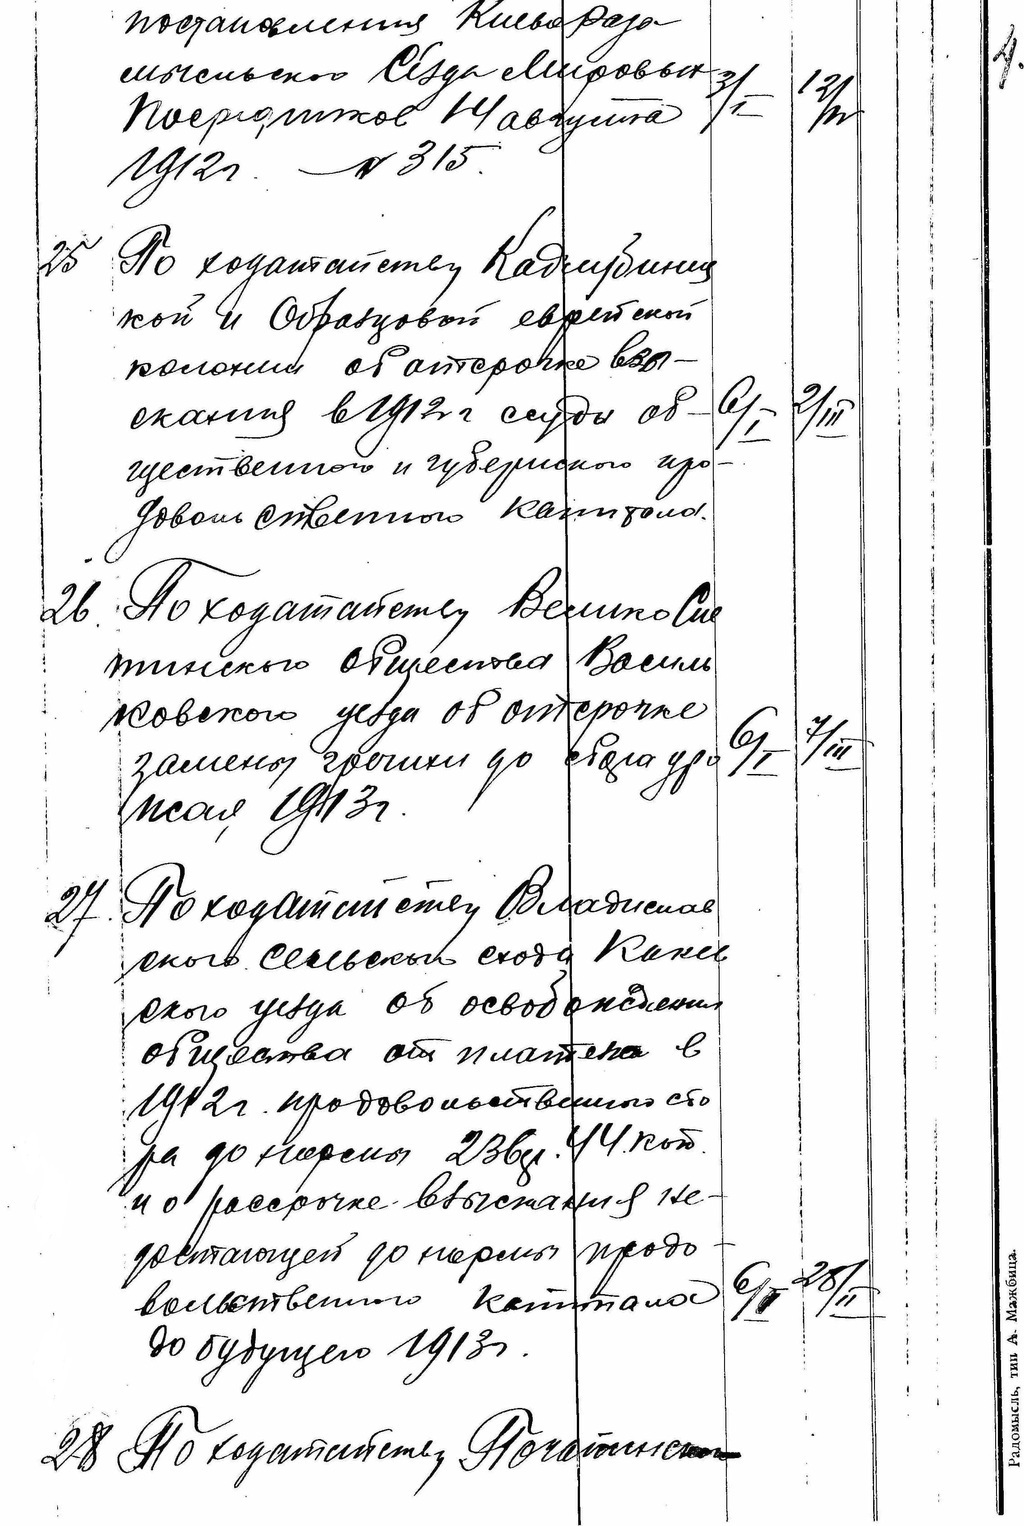 постановления Киево Радо
мысльского Съезда Мировых 3/I 12/IV
Посредников 14 августа
1912 г. № 315.
4.
25 По ходатайству Кадлубиниц
кой и Образцовой еврейской
колонии об отсрочке взы-
скания в 1912 г ссуды об- 6/I 2/III
щественного и губернского про-
довольственного капитала.
26 По ходатайству Велико Сне
тинского общества Василь
ковского уезда об отсрочке
замены гречихи до сбора уро 6/I 7/III
жая 1913 г.
27. По ходатайству Владислав
ского сельского схода Канев
ского уезда об освобождении
общества от платежа в
1912 г. продовольственного сбо
ра до нормы 23 44 коп.
и о рассрочке взыскания не-
достающей до нормы продо-
вольственного капитала 6/II 28/II
до будущего 1913 г.
28 По ходатайству
Радомысль, тип А. Мажбица.